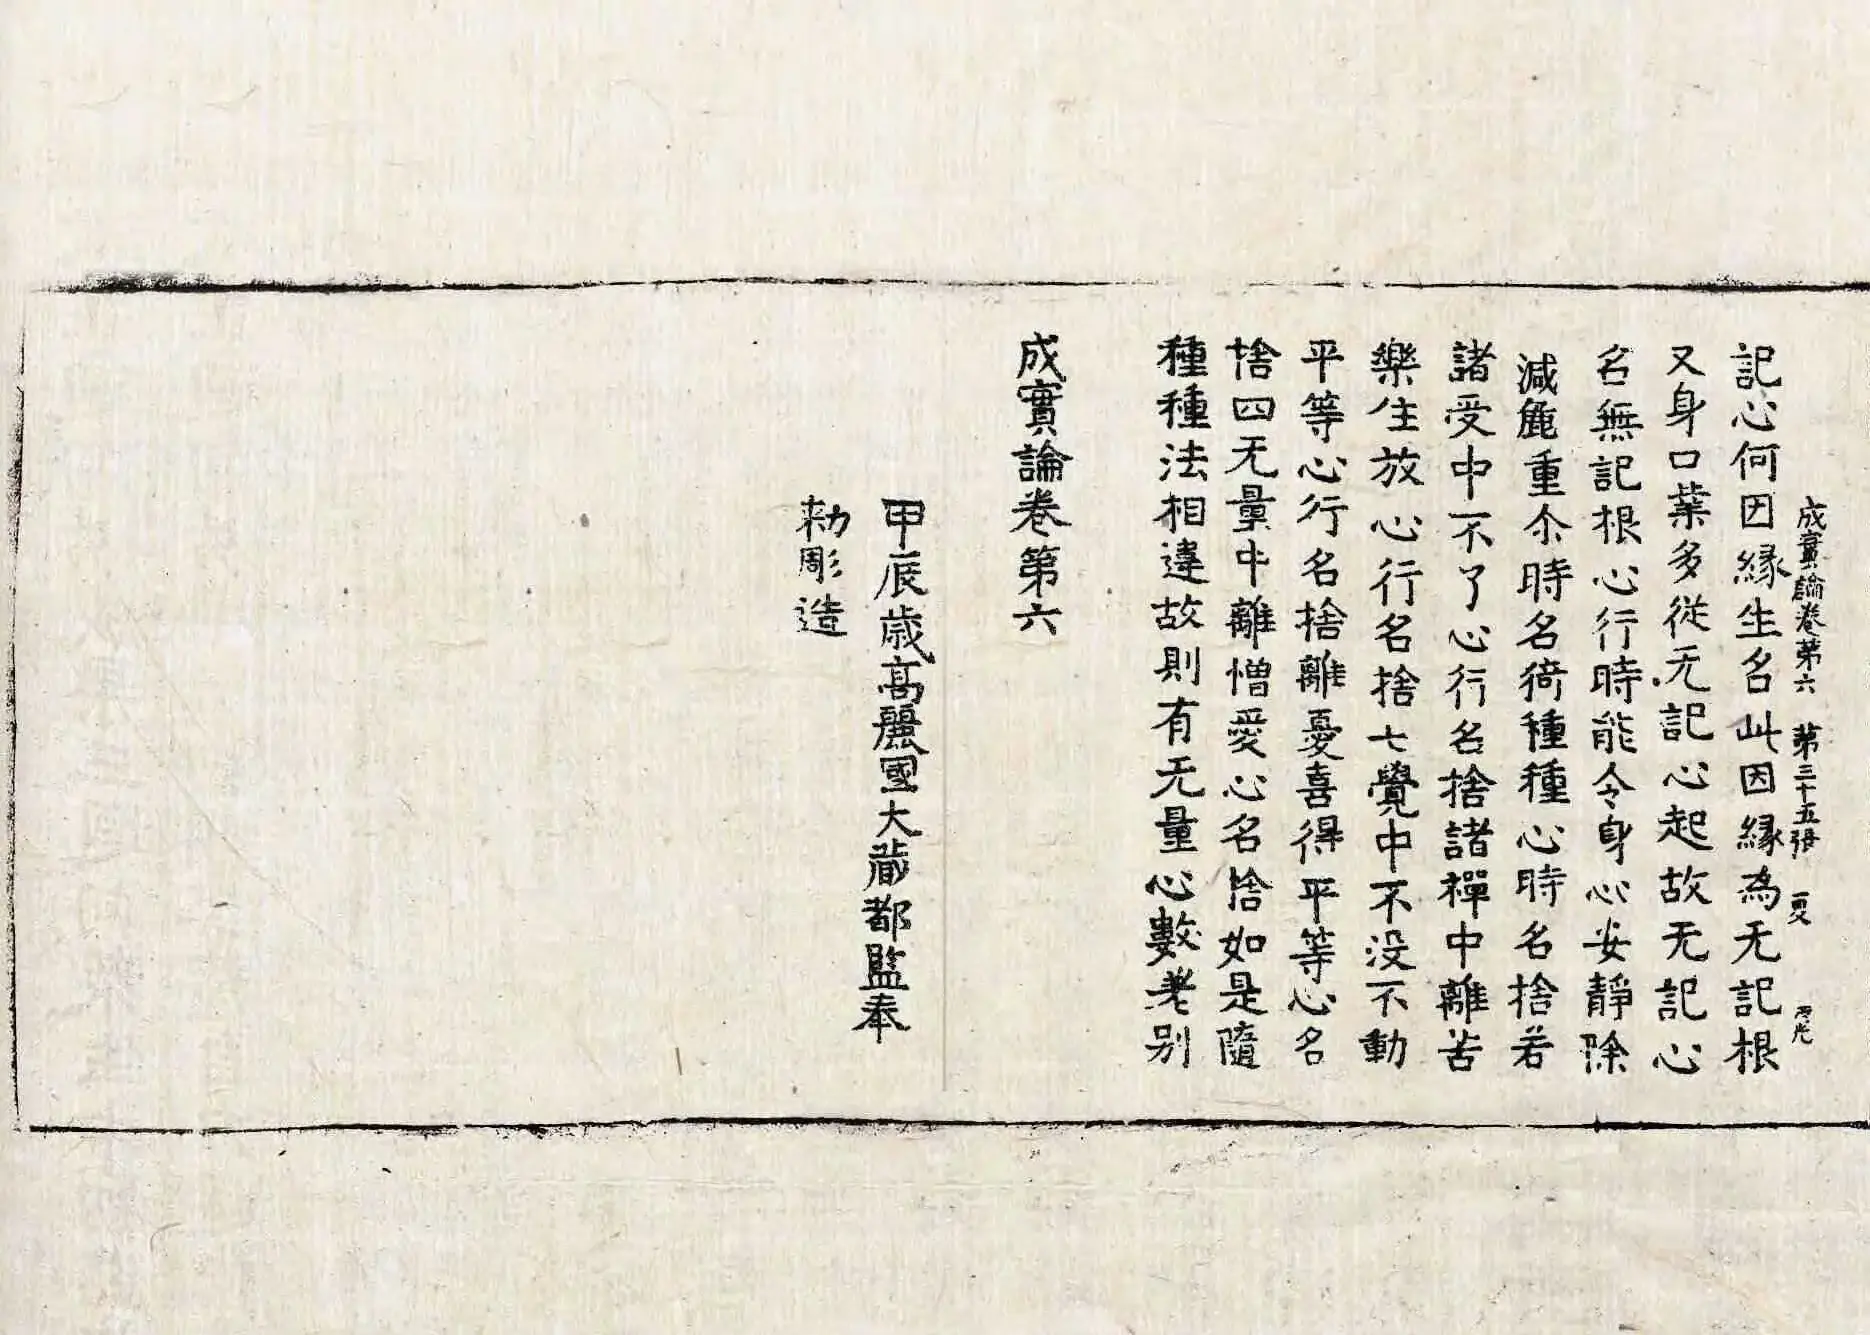 成實論卷第六 第三十五張 夏
記心何因縁生名此因縁為无記根
又身口業多從无記心起故无記心
名無記根心行時能令身心安靜除
減麁重尒時名猗種種心時名捨若
諸受中不了心行名捨諸禪中離苦
樂住放心行名捨七覺中不没不動
平等心行名捨離憂喜得平等心名
捨四无量中離憎愛心名捨如是隨
種種法相違故則有无量心數差别
成實論卷第六
甲辰歳高麗國大藏都監奉
勑彫造